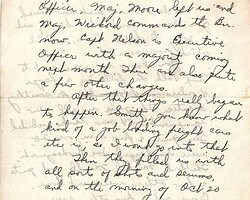 Officer, Maj. Moore left us and
Maj. Wickord command the Bn.
now, Capt Nelson is Executive
Officer with a majority coming
next month. There are also quite
a few other changes.
After that things really began
to happen. Smitty, you know what
kind of a job loading freight cars
etc is, so I won't go into that
Then they filled us with
all sorts of shots and serums,
and on the morning of Oct 20